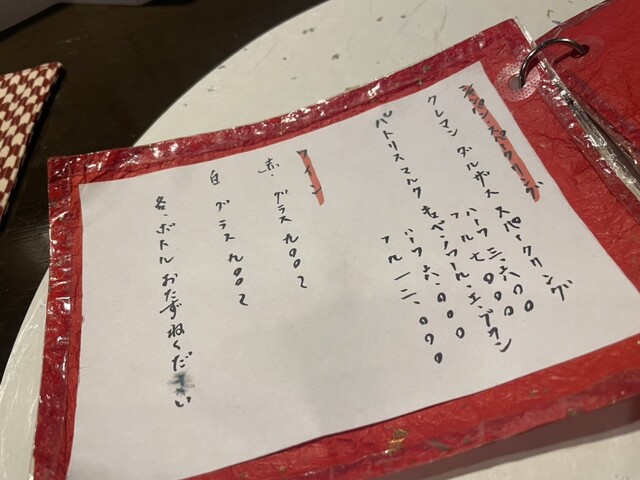 シャンパンスパークリング
クレマン ダルザス スパークリング
ハーフ 三、六〇〇
フル 七、〇〇〇
パトリスマルク
ハーフ 六、〇〇〇
フル 一二、〇〇〇
ワイン
赤、グラス 九〇〇
白 グラス 九〇〇
各、ボトル おたずねください